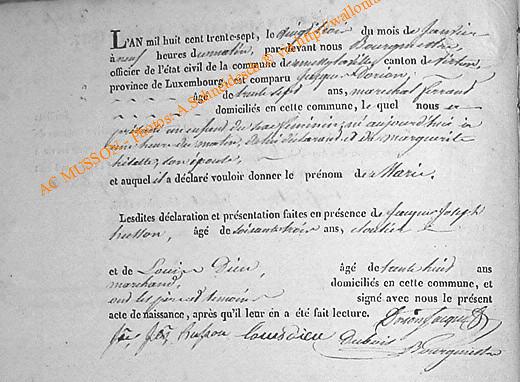 L'AN mil huit cent trente-sept, le vingt trois du mois de janvier
à neuf heures du matin, par-devant nous Bourgmestre,
officier de l'état civil de la commune de canton de Virton,
province de Luxembourg, est comparu Jacque Dorion,
âgé de trente sept ans, marechal ferrand
domiciliés en cette commune, le quel nous
présenté un enfant du sexe féminin, né aujourd'hui à
une heure du matin, de lui déclarant et de marguerite
son épouse,
et auquel il a déclaré vouloir donner le prénom de Marie.
Lesdites déclaration et présentation faites en présence de Jacque Joseph
husson, âgé de soixante trois ans,
et de Louis Dieu, âgé de trente huit ans
marchand, domiciliés en cette commune, et
ont les père et temoins signé avec nous le présent
acte de naissance, après qu'il leur en a été fait lecture.
Dorion Jacque
husson Louis Dieu Dubois
Bourgmestre
AC MUSSON - Photos: A Schneidesch @ http://wallonia